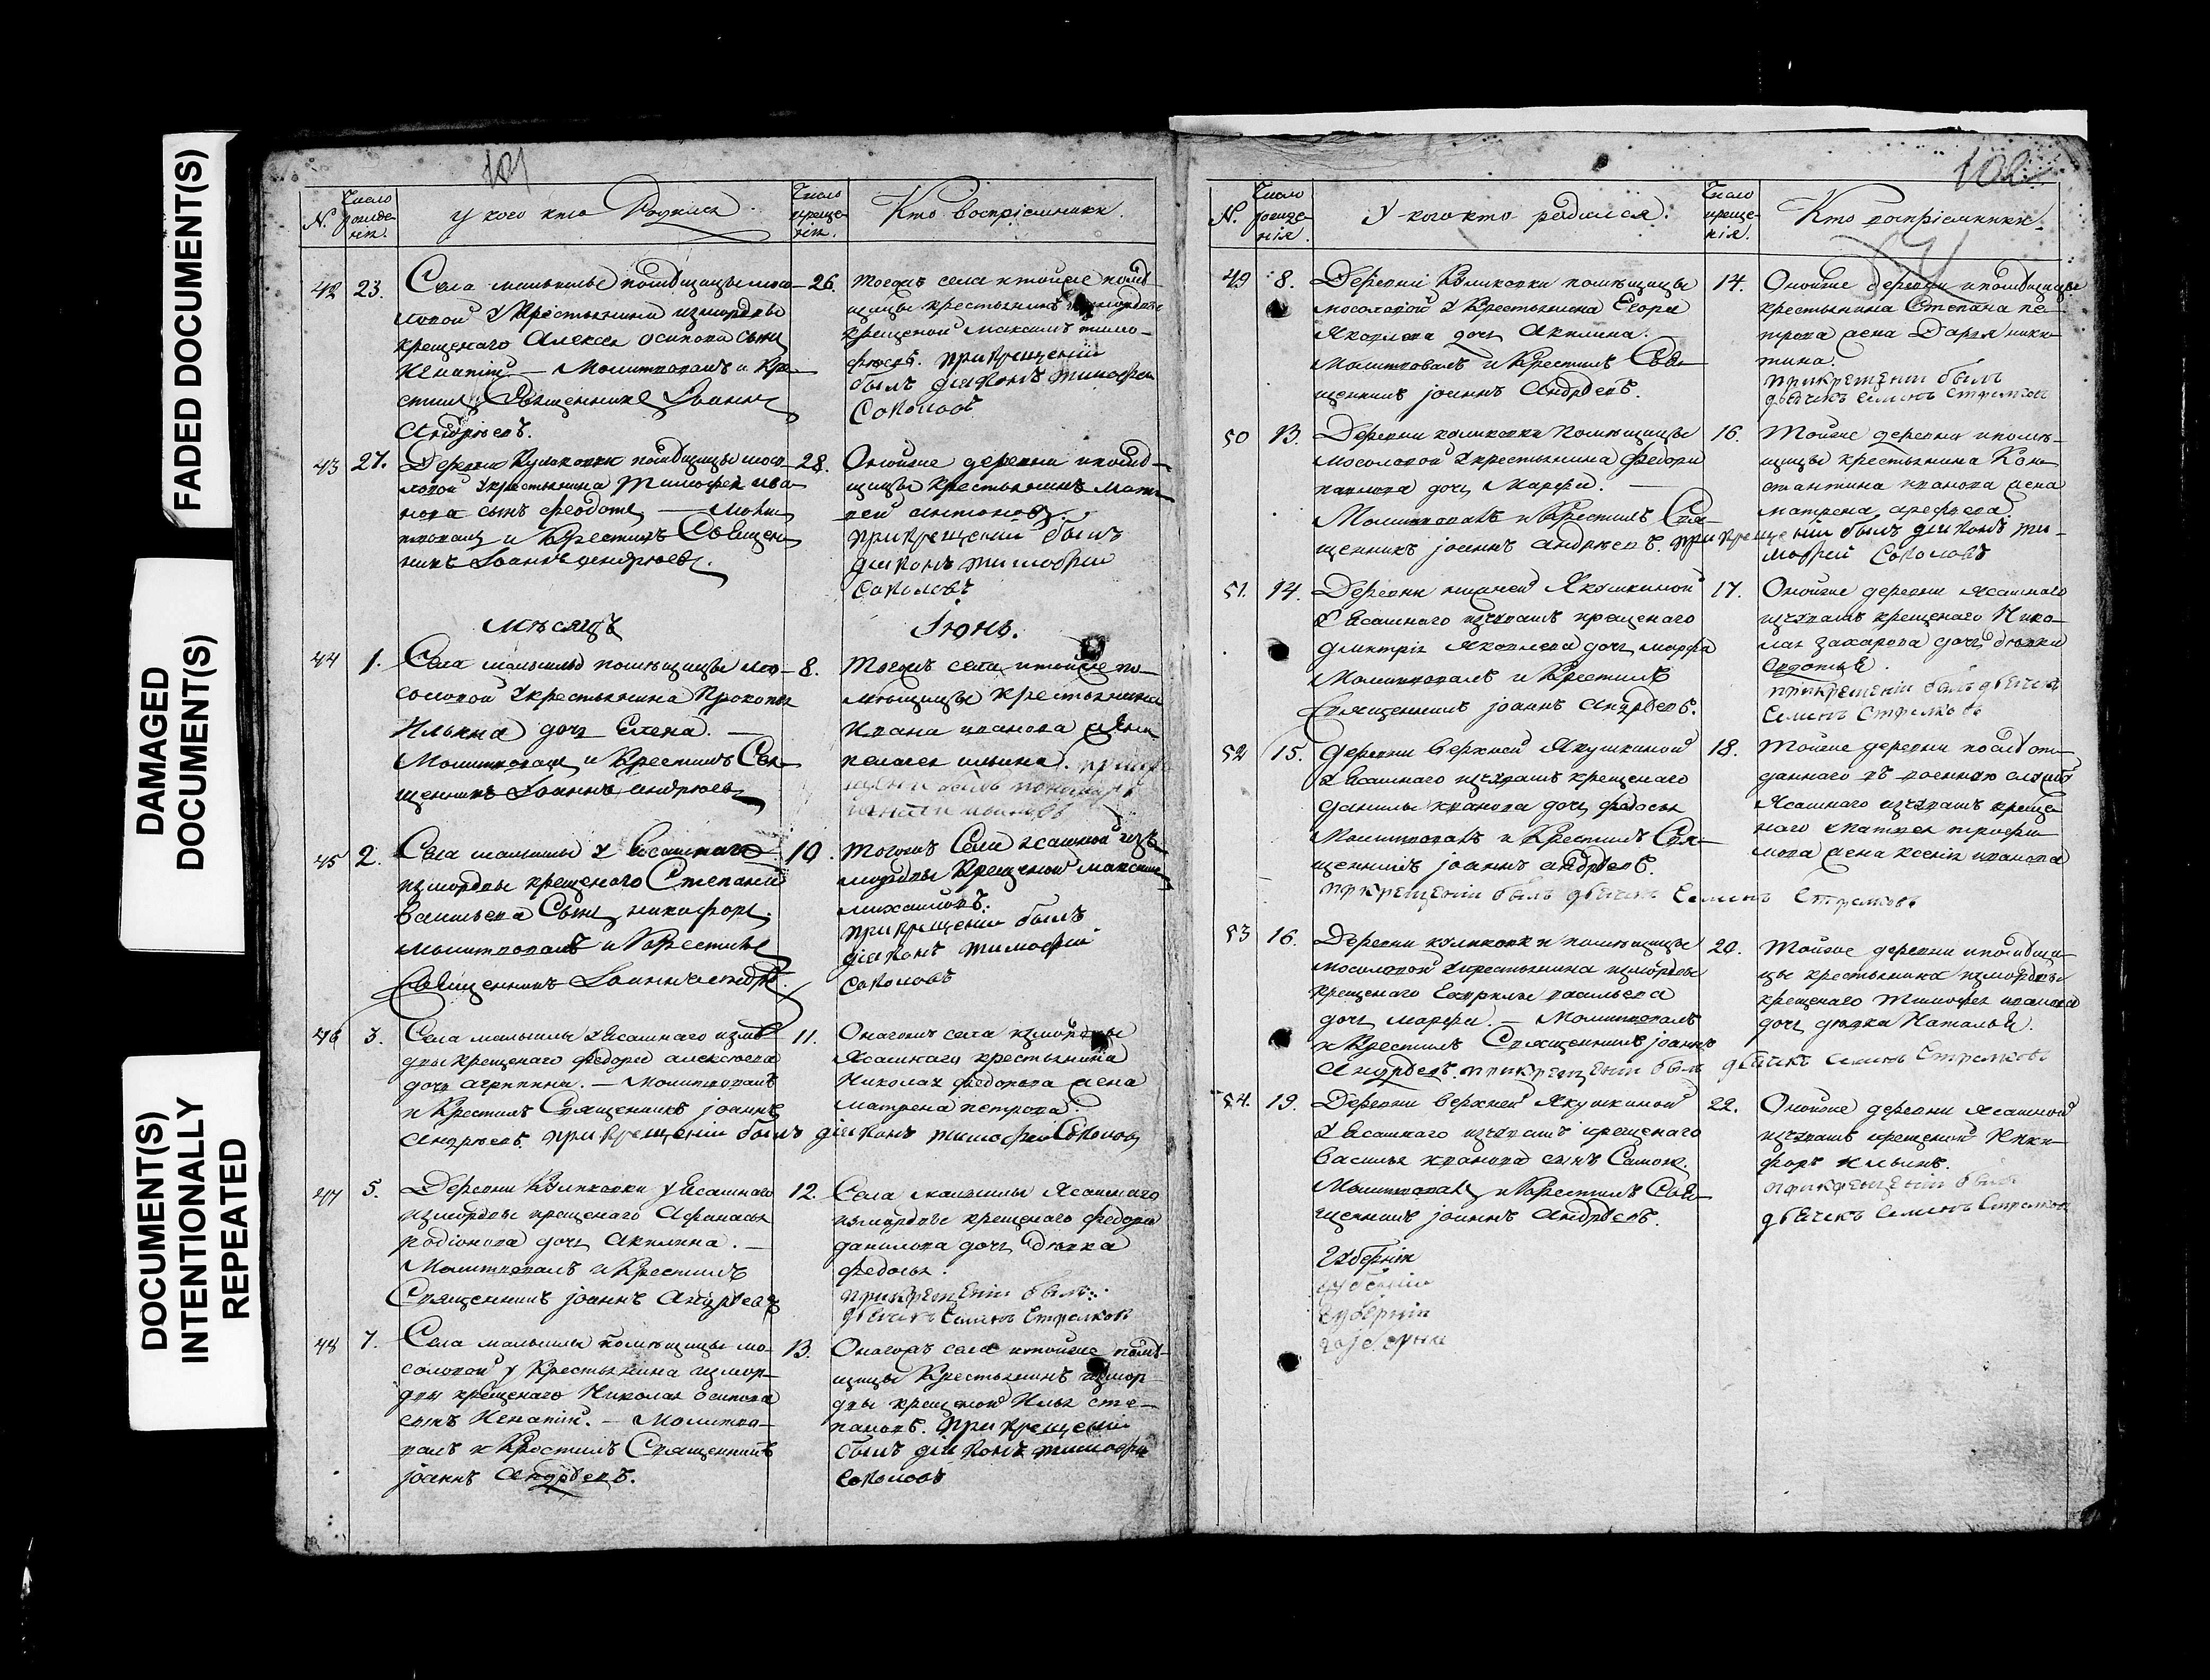 FADED DOCUMENT(S)
DAMAGED
DOCUMENT(S)
DOCUMENT(S)
INTENTIONALLY
REPEATED
101
№. Число рожденія. У кого кто Родился. Число крещенія. Кто воспріемники.
42 23. Села помѣщицы мосо-
ловой У Крестьянина измордвы
крещенаго Алексея осипова сынъ
Игнатій. — Молитвовалъ и Кре-
стилъ Священникъ Іоаннъ
Андрѣевъ.
26. тогожъ села итойже помѣ-
щицы крестьянинъ измордвы
крещеной максимъ тимо-
фѣевъ. при крещеніи
былъ діяконъ тимофей
Соколовъ
43 27. Деревни помѣщицы мосо-
ловой Укрестьянина Тимофея ива-
нова сынъ феодотъ — Моли
твовалъ и Крестилъ Священ
никъ Іоаннъ андрѣевъ.
28. Онойже деревни ипомѣ-
щицы крестьянинъ мат-
вей антоновъ.
при крещеніи былъ
діяконъ тимофѣй
Соколовъ
мѣсяцъ Іюнь.
44 1. Села помѣщицы мо-
соловой Укрестьянина Прокопья
Ильина дочь Елена. —
Молитвовалъ и Крестилъ Свя-
щенникъ Іоаннъ андрѣевъ
8. Тогожъ села итойже по-
мѣщицы крестьянина
Ивана иванова жена
пелагея ильина.
45 2. Села У Ясашнаго
измордвы крещенаго Степана
Васильева Сынъ никифоръ.
молитвовалъ и Крестилъ
Священникъ Іоаннъ андре.
10. тогожъ Села ясашной изъ
мордвы Крещеной максимъ
михайловъ.
при крещеніи былъ
діяконъ тимофѣй
Соколовъ
46 3. Села У Ясашнаго измо
двы крещенаго федора алексѣева
дочь агрипина. — молитвовалъ
и Крестилъ Священникъ іоаннъ
андрѣевъ. при крещеніи былъ діяконъ тимофей Соколовъ
11. Онагожъ села измордвы
Ясашнаго крестьянина
Николая федотова жена
матрена петрова.
47 5. Деревни У Ясашнаго
измордвы крещенаго Афанасья
родіонова дочь акилина. —
Молитвовалъ и Крестилъ
Священникъ іоаннъ Андрѣевъ
12. Села Ясашнаго
измордвы крещенаго федора
данилова дочь дѣвка
федосья.
при крещеніи былъ
дьячекъ Семенъ Стрелковъ
48 7. Села помѣщицы мо-
соловой у Крестьянина измор-
двы крещенаго Николая осипова
сынъ Игнатій. — Молитво-
валъ и Крестилъ Священникъ
іоаннъ Андрѣевъ.
13. Онагожъ села итойже помѣ-
щицы Крестьянинъ измор-
двы крещеной Илья сте-
пановъ. при крещеніи
былъ діяконъ тимофѣй
Соколовъ
102
№. Число рожденія. У кого кто родился. Число крещенія. Кто воспріемники.
49 8. Деревни помѣщицы
мосоловой У Крестьянина Егора
Яковлева дочь Акилина. —
Молитвовалъ и Крестилъ Свя-
щенникъ іоаннъ Андрѣевъ.
14. Онойже деревни ипомѣщицы
крестьянина Степана пе-
трова жена Дарья ники-
тина.
при крещеніи былъ
дьячекъ Семенъ Стрелковъ
50 13. Деревни помѣщицы
мосоловой Укрестьянина федора
павлова дочь Марфа. —
Молитвовалъ и Крестилъ Свя-
щенникъ іоаннъ андрѣевъ. при крещеніи былъ діяконъ ти-
мофей Соколовъ
16. Тойже деревни ипомѣ-
щицы крестьянина Кон-
стантина иванова жена
матрена арефьева.
51. 14. Деревни нижней Якушкиной
У Ясашнаго изчувашъ крещенаго
дмитрія Яковлева дочь марфа
Молитвовалъ и Крестилъ
Священникъ іоаннъ Андрѣевъ.
17. Онойже деревни ясашнаго
изчувашъ крещенаго Нико-
лая захарова дочь дѣвка
Евдотья.
при крещеніи былъ дьячекъ
Семенъ Стрелковъ
52 15. деревни верхней Якушкиной
У Ясашнаго изчувашъ крещенаго
данилы иванова дочь федосья
Молитвовалъ и Крестилъ Свя-
щенникъ іоаннъ андрѣевъ.
при крещеніи былъ дьячекъ Семенъ Стрелковъ
18. Тойже деревни послѣ от-
даннаго въ военную службу
Ясашнаго изчувашъ креще-
наго игнатья трофи-
мова жена ксенія иванова
53 16. Деревни помѣщицы
мосоловой Укрестьянина измордвы
крещенаго Гаврилы васильева
дочь марфа. — Молитвовалъ
и Крестилъ Священникъ іоаннъ
Андрѣевъ. при крещеніи былъ дьячекъ Семенъ Стрелковъ
20. Тойже деревни ипомѣщи-
цы крестьянина измордвы
крещенаго Тимофея иванова
дочь дѣвка Наталья.
54. 19. Деревни верхней Якушкиной
У Ясашнаго изчувашъ крещенаго
Василья иванова сынъ
Молитвовалъ и Крестилъ Свя-
щенникъ іоаннъ Андрѣевъ.
22. Онойже деревни ясашной
изчувашъ крещеной Ники-
форъ Ильинъ.
при крещеніи былъ
дьячекъ Семенъ Стрелковъ
Губернія
губерніи
Губерніи
губерніи